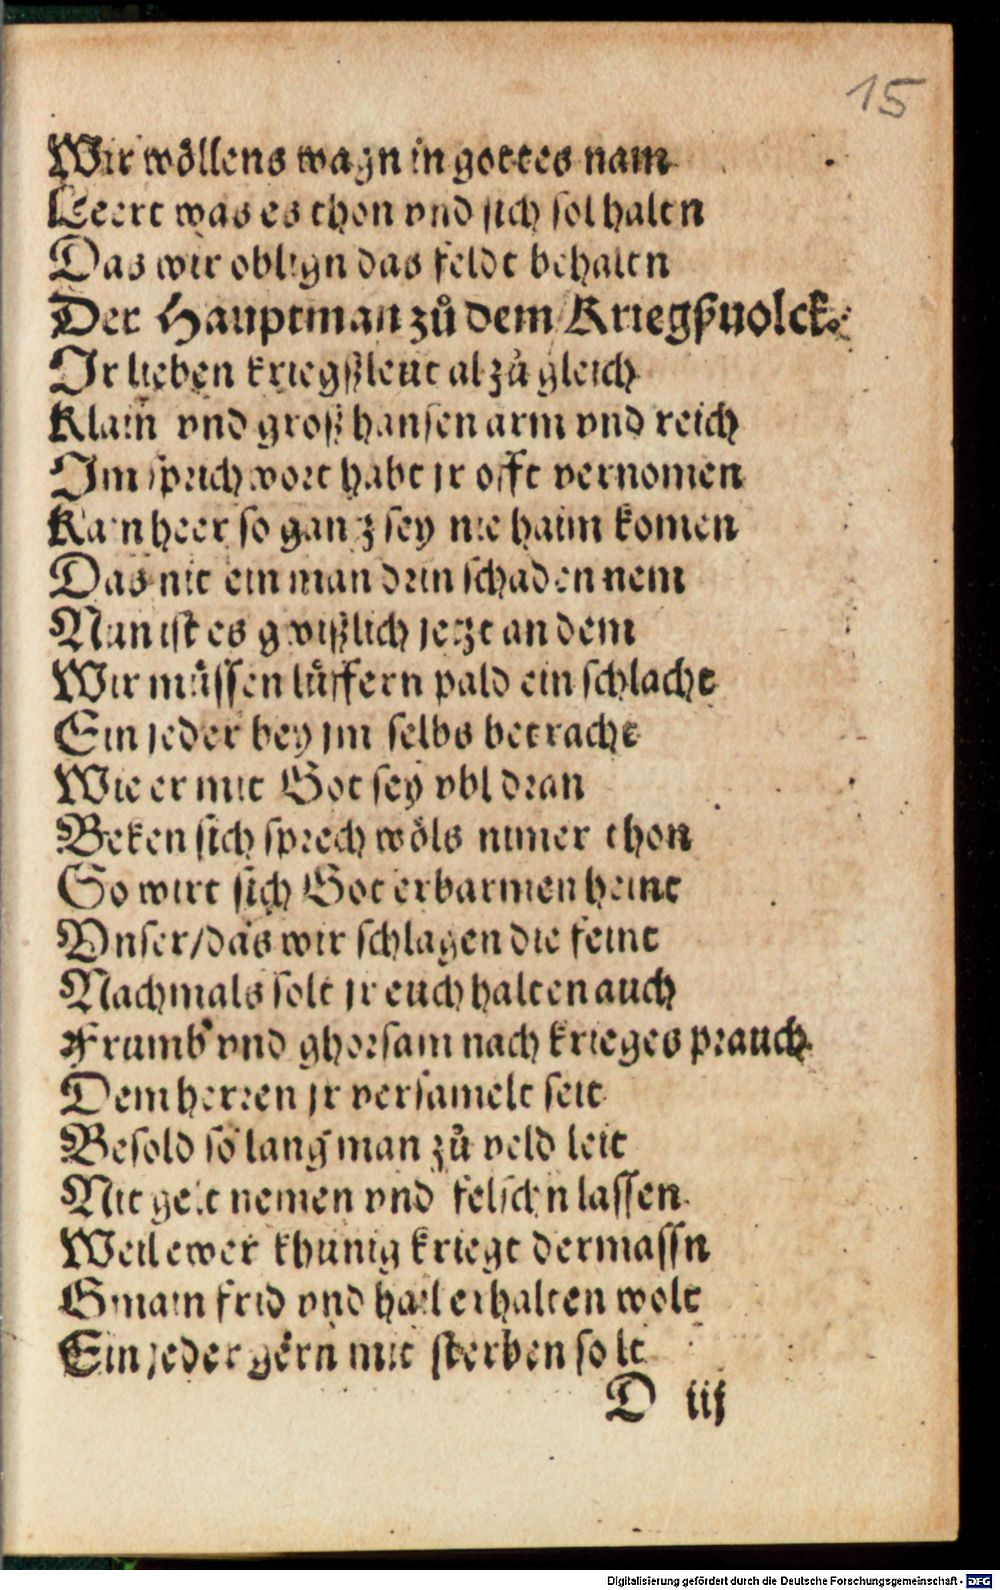 15
Wir wöllens wagn in gottes nam
Leert was es thon vnd sich sol haltn
Das wir oblign das feldt behaltn
Der Hauptman zů dem Kriegßuolck.
Ir lieben kriegßleut al zů gleich
Klain vnd groß hansen arm vnd reich
Im sprichwort habt jr offt vernomen
Kain heer so gantz sey nie haim komen
Das nit ein man drin schaden nem
Nun ist es gwißlich jetzt an dem
Wir müssen lüffern pald ein schlacht
Ein jeder bey jm selbs betracht
Wie er mit Got sey vbl dran
Beken sich sprech wöls nimer thon
So wirt sich Got erbarmen heint
Vnser/das wir schlagen die feint
Nachmals solt jr euch halten auch
Frumb vnd ghorsam nach krieges prauch
Dem herren jr versamelt seit
Besold so lang man zů veld leit
Mit gelt nemen vnd felschn lassen
Weil ewer khünig kriegt dermassn
Gmain frid vnd hail erhalten wolt
Ein jeder gern mit sterben solt
D iij
Digitalisierung gefördert durch die Deutsche Forschungsgemeinschaft - DFG